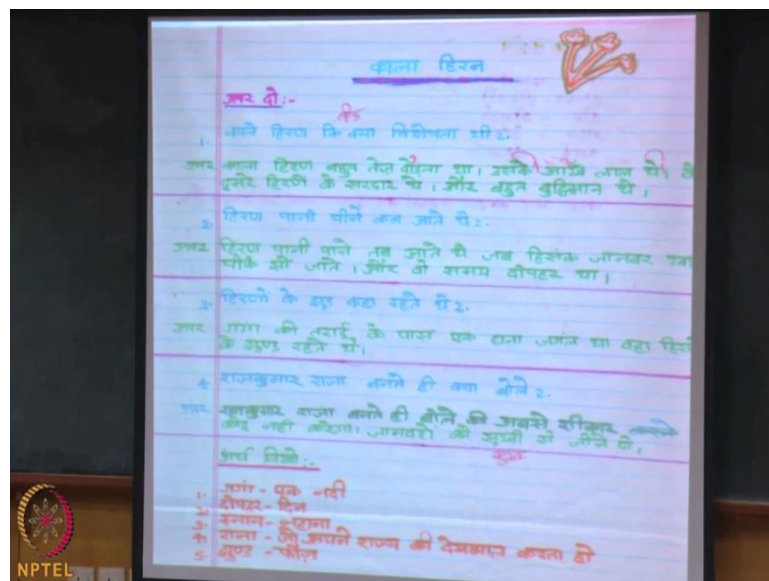 काला हिरन
उत्तर दो:-
की
1. काले हिरण कि क्या विशेषता थी?
उत्तर काला हिरण बहुत तेज़ दौड़ता था। उसकी आँखे लाल थी। वे
दुसरे हिरणो के सरदार थे। और बहुत बुद्धिमान थे।
2. हिरण पानी पीने कब आते थे?
उत्तर हिरण पानी पीने तब आते थे जब हिसंक जानवर
पीके सो जाते। और वो समय दोपहर था।
3. हिरणो के झुण्ड कहा रहते थे?
उत्तर गंगा की तराई के पास एक घना जगंल था वहा हिरणो
के झुण्ड रहते थे।
4. राजकुमार राजा बनते ही क्या बोले?
उत्तर राजकुमार राजा बनते ही बोले की अबसे शीकार
कोइ नही करेगा। जानवरो को सुख से जीने दो।
अर्थ लिखो:-
1. गगां - एक नदी
2. दोपहर - दिन
3. स्नान - नहाना
4. राजा - जो अपने राज्य की देखभाल करता हो
5. झुण्ड - फौज
NPTEL